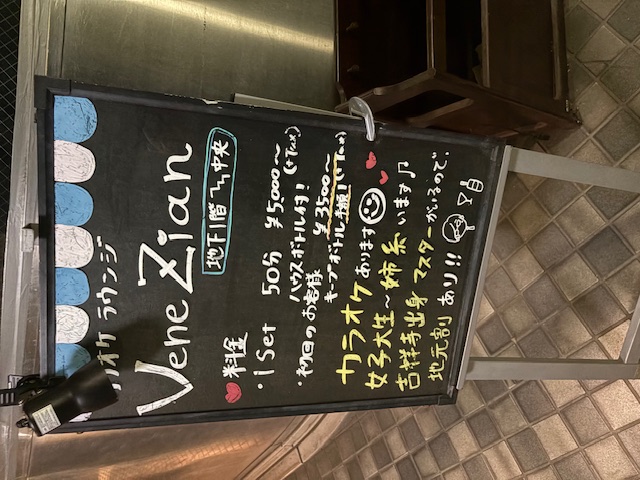 カラオケ ラウンジ
VeneZian
地下1階 中央
料金
・1 Set 50分 ¥5,000〜
(+Tax)
ハウスボトル付!
・初回のお客様 ¥3500〜(+Tax)
キープボトル半額!
カラオケあります
女子大生〜姉系います♪
吉祥寺出身マスターがいるので、
地元割あり!!